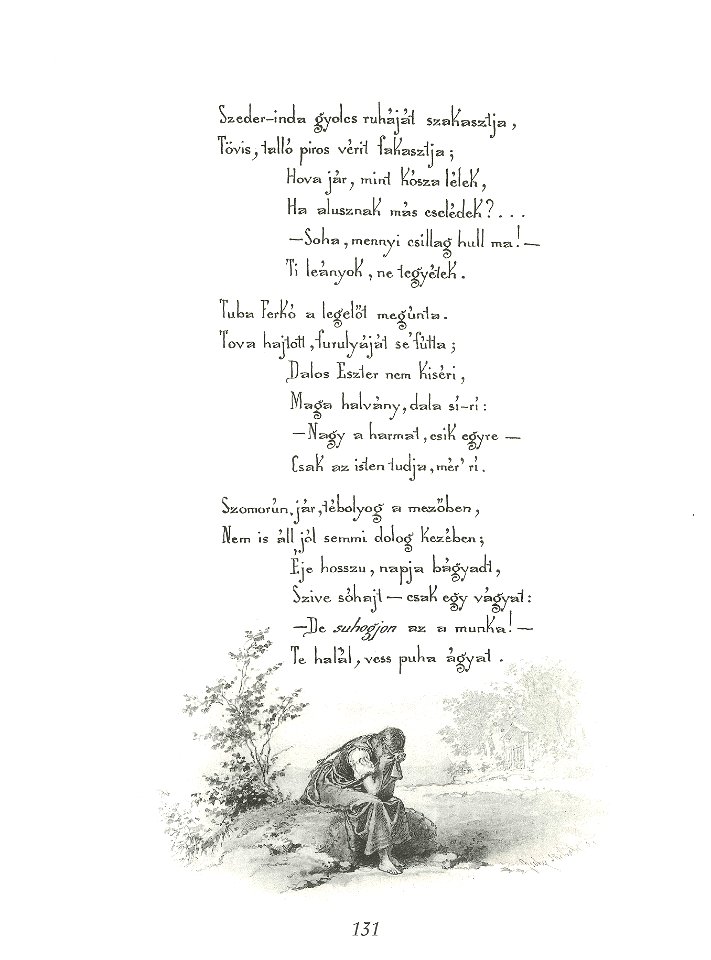 Szeder-inda gyolcs ruháját szakasztja,
Tövis, talló piros vérit fakasztja;
Hova jár, mint kósza lélek,
Ha alusznak más cselédek?...
—Soha, mennyi csillag hull ma!—
Ti leányok, ne tegyétek.
Tuba Ferkó a legelőt megúnta.
Tova hajtott, furulyáját se' fútta;
Dalos Eszter nem kiséri,
Maga halvány, dala sí-rí:
—Nagy a harmat, esik egyre —
Csak az isten tudja, mér' rí.
Szomorún, jár, tébolyog a mezőben,
Nem is áll jól semmi dolog kezében;
Éje hosszu, napja bágyadt,
Szive sóhajt — csak egy vágyat:
—De suhogjon az a munka!—
Te halál, vess puha ágyat.
131